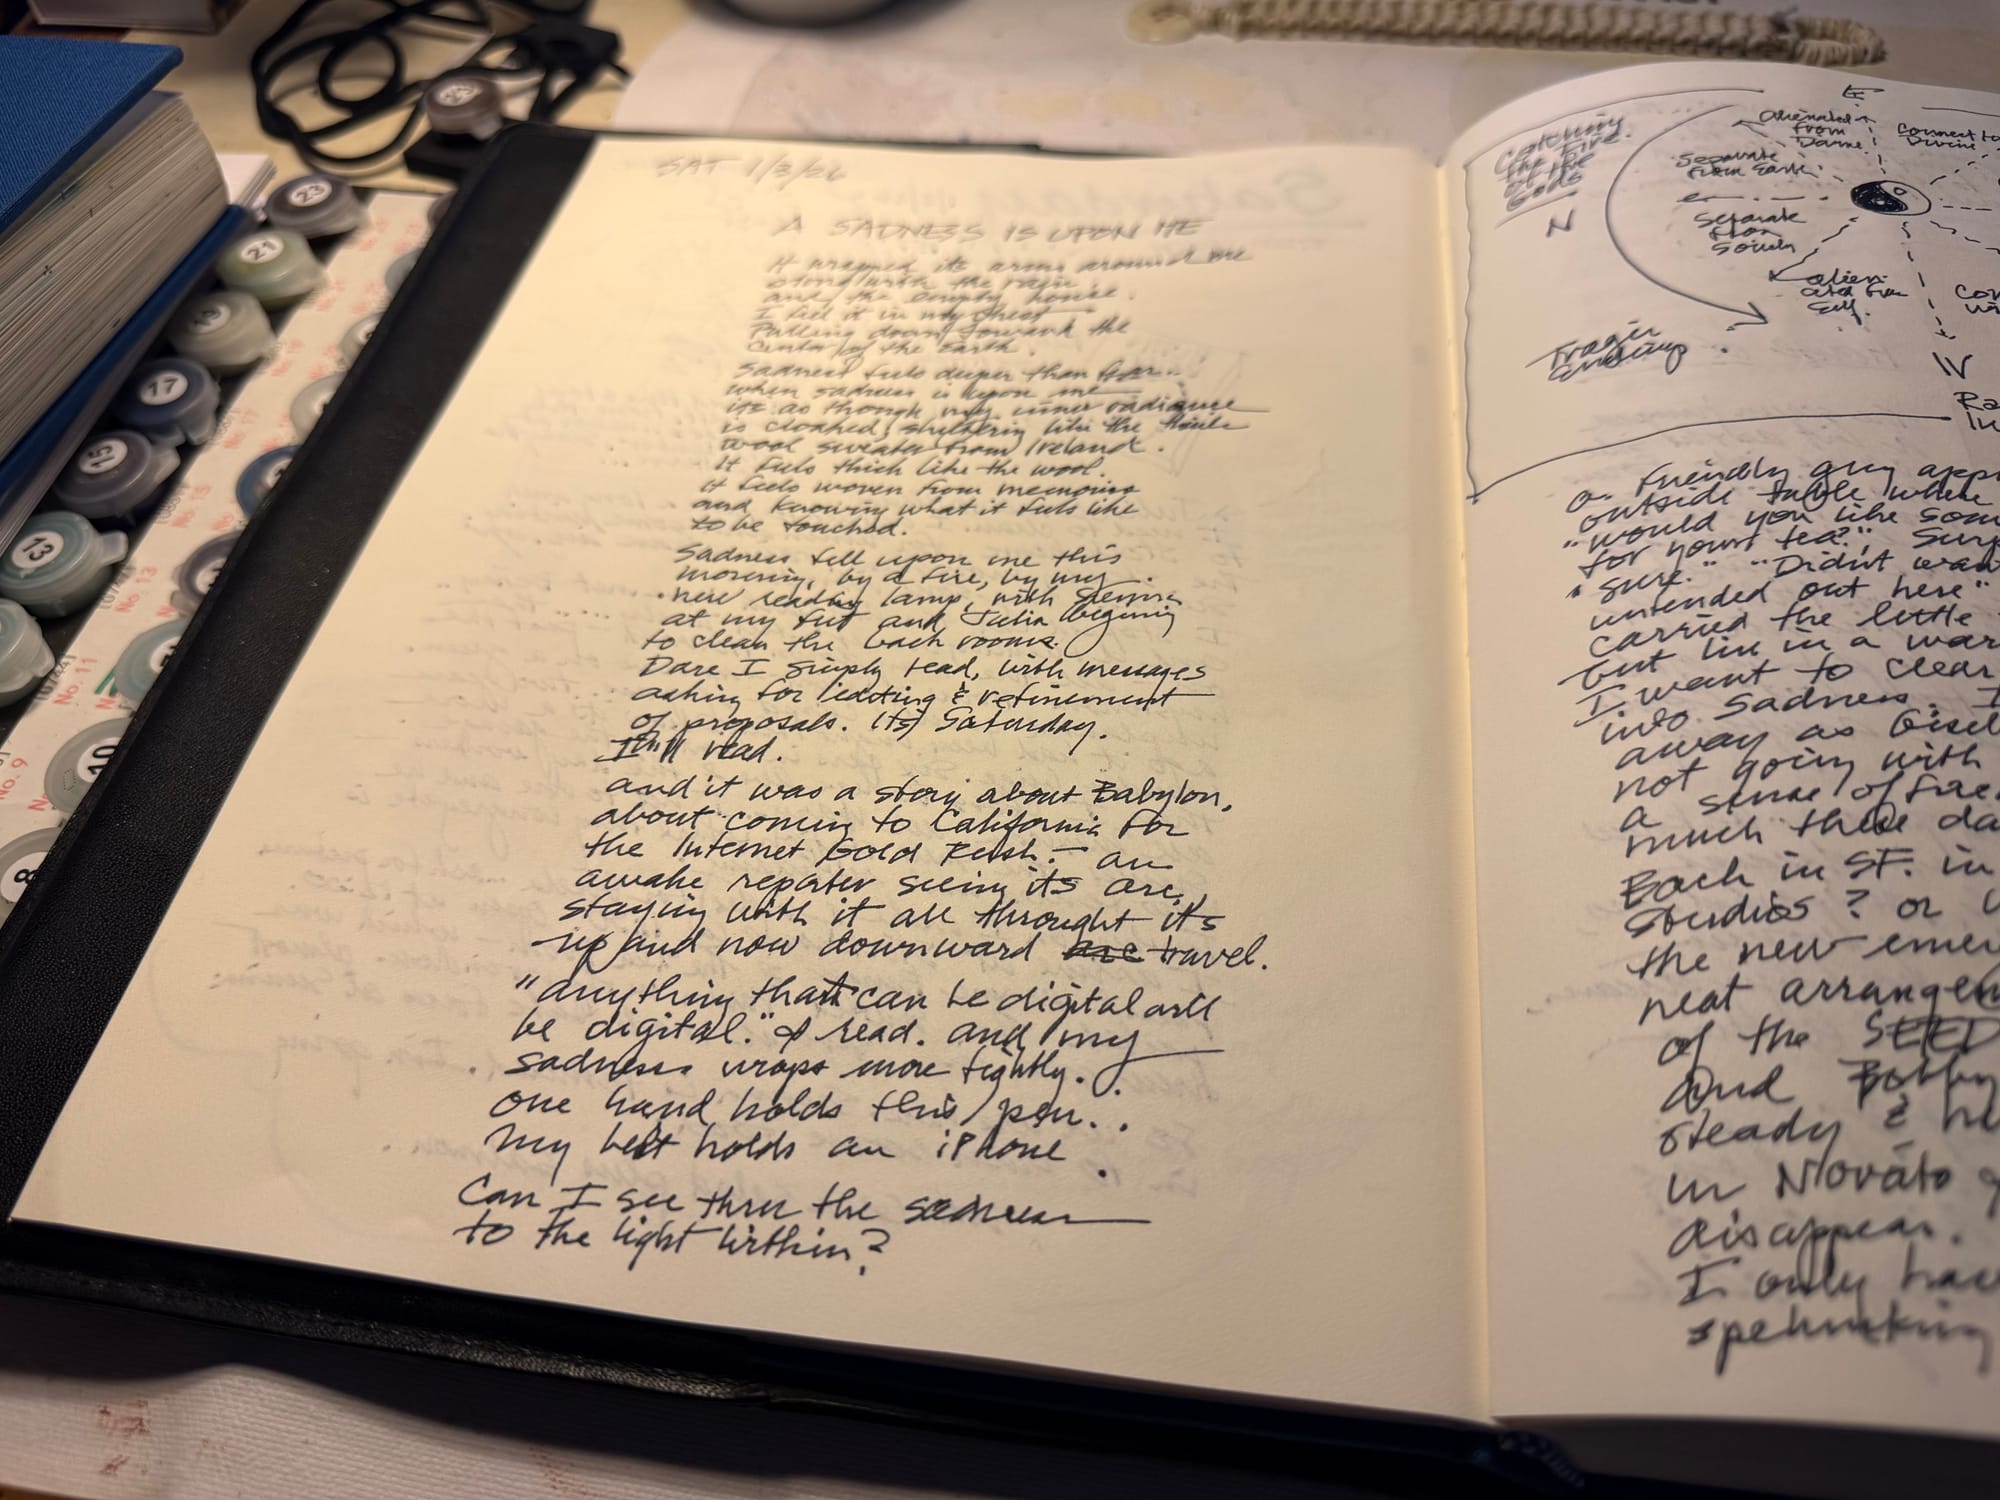 SAT 1/3/26
A SADNESS IS UPON ME
It wrapped its arms around me
along with the rain
and the empty house.
I feel it in my chest
Pulling down toward the
center of the Earth.
Sadness feels deeper than
when sadness is upon me
its as though my inner radiance
is cloaked, sheltering like the thick
wool sweater from Ireland.
It feels thick like the wool.
It feels woven from memories
and knowing what it feels like
to be touched.
Sadness fell upon me this
morning, by a fire, by my
new reading lamp, with Sienna
at my feet and Julia begining
to clean the back rooms.
Dare I simply read, with messages
asking for editing & refinement
of proposals. Its Saturday.
I'll read.
and it was a story about Babylon,
about coming to California for
the Internet Gold Rush. — an
awake reporter seeing its arc,
staying with it all throught it's
up and now downward arc travel.
"anything that can be digital will
be digital." I read. and my
sadness wraps more tightly.
one hand holds this pen..
My belt holds an iPhone.
Can I see thru the sadness
to the light within?
Catching
the Fire
of the
Gods
N
E
Alienated
from
Connect to
Divine
Separate
from Earth
Separate
from
Society
alien-
ated from
Self.
Con
Tragic
Ending
IV
Ra
In
a friendly guy app
outside table where
"would you like som
for your tea?", Surp
"sure." "Didn't wan
untended out here"
carried the little
but live in a war
I want to clear
into sadness. I
away as Gisel
not going with
a sense of fire
much these da
Back in SF. in
Studios? or
the new emer
neat arrangem
of the SEED
And Bobby
steady & he
in Novato
disappear.
I only hav
spelunking
23
21
19
17
15
13
10
8
No. 13
No. 11
No. 9